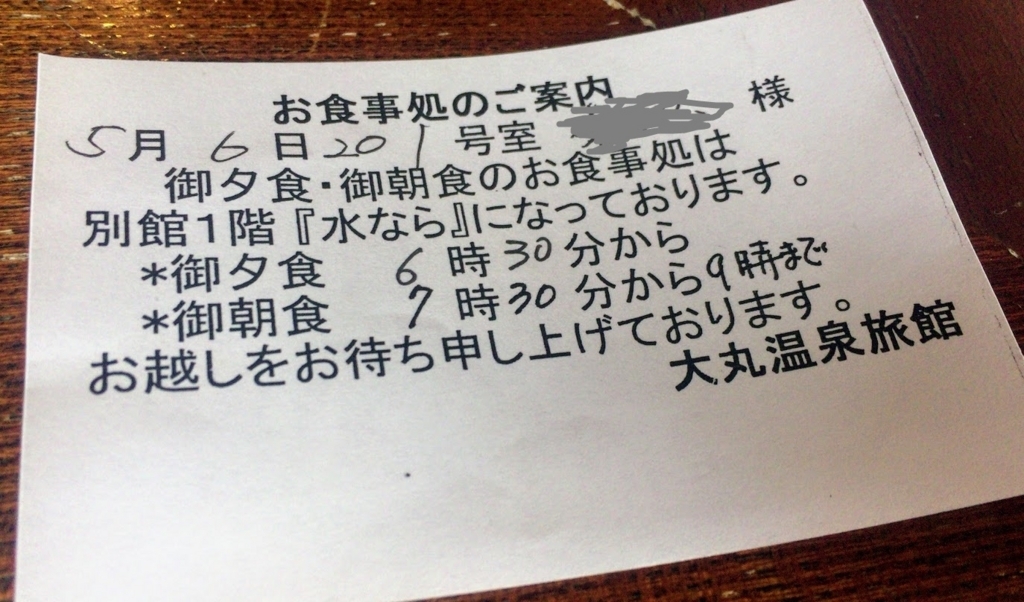 お食事処のご案内
5月 6日 201号室 様
御夕食・御朝食のお食事処は
別館1階『水なら』になっております。
*御夕食 6時30分から
*御朝食 7時30分から9時まで
お越しをお待ち申し上げております。
大丸温泉旅館